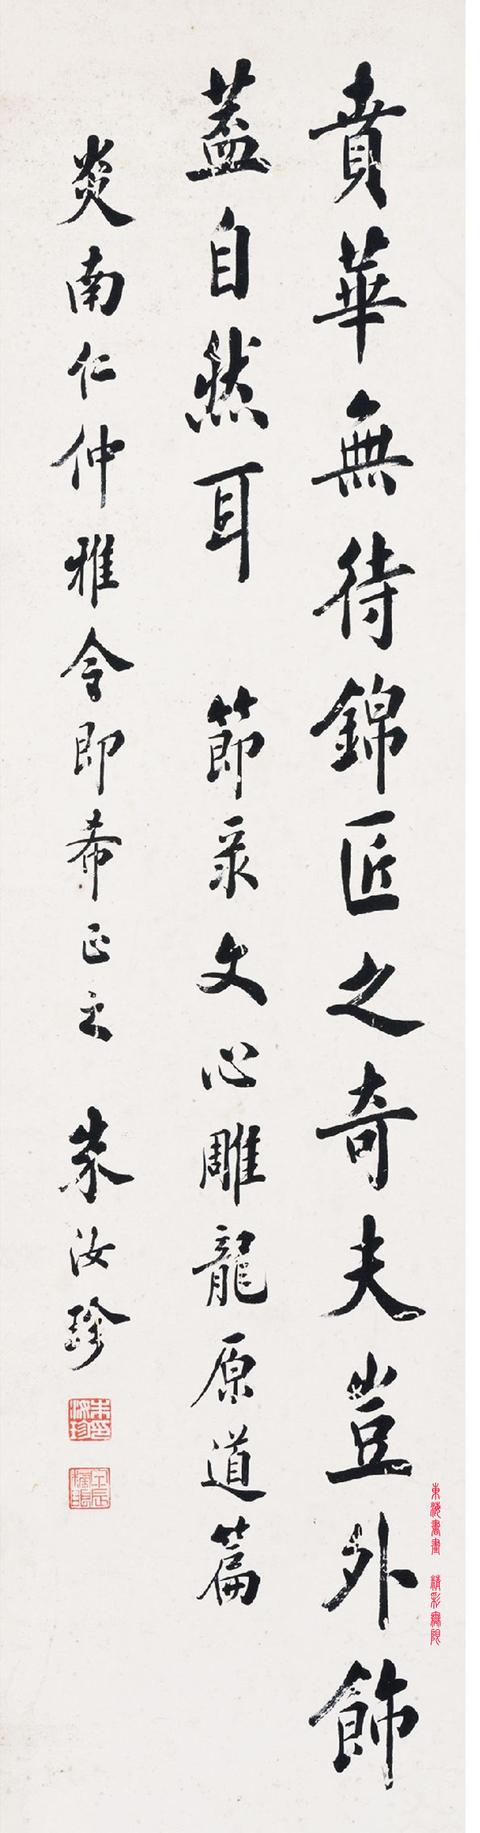 賁華無待錦匠之奇夫豈外飾
葢自然耳 節录文心雕龍原道篇
炎南仁仲雅令即希正之 朱汝珍
朱印汝珍
東海書畫 精彩無限